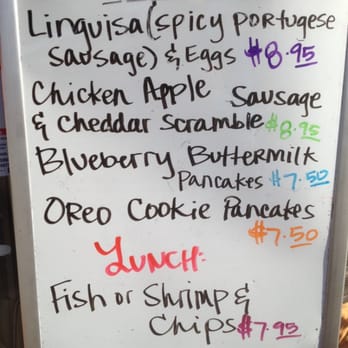 Linguisa (spicy Portugese
Sausage) & Eggs $8.95
Chicken Apple Sausage
& Cheddar Scramble $8.95
Blueberry Buttermilk
Pancakes $7.50
Oreo Cookie Pancakes
$7.50
Lunch:
Fish or Shrimp &
Chips $7.95